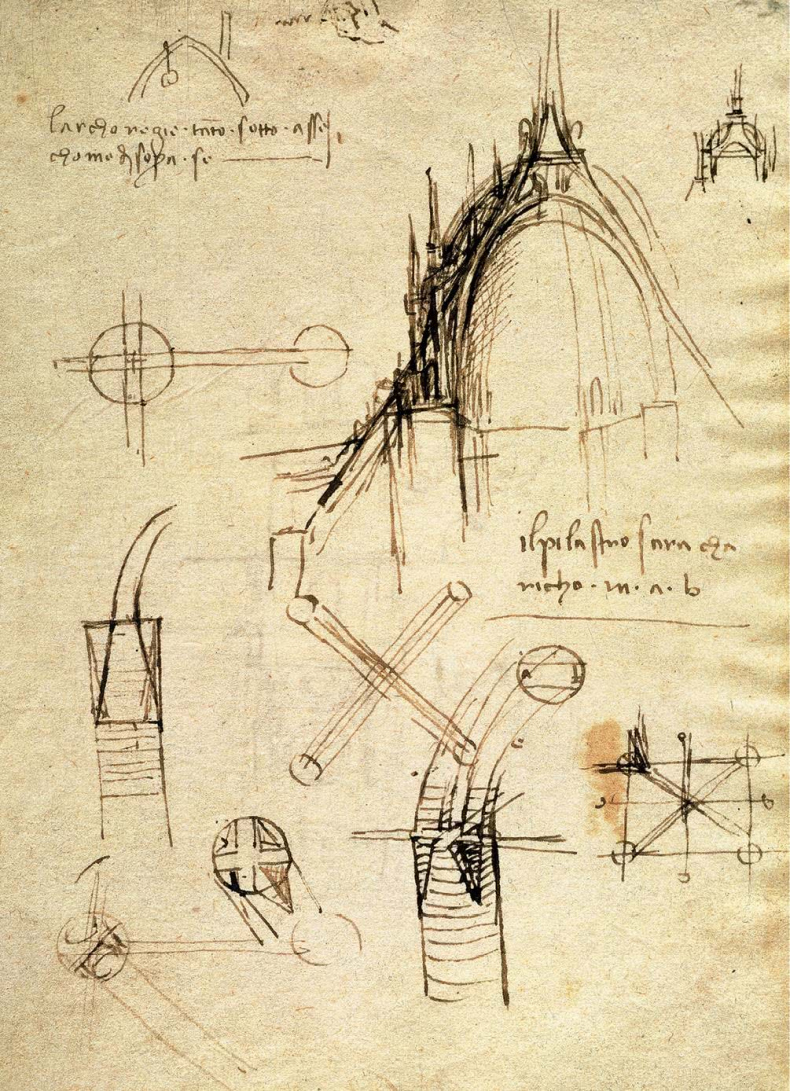 larcho regie tāto sotto asse
chome di sopa se
il pilastro sara cha
richo in a b
a